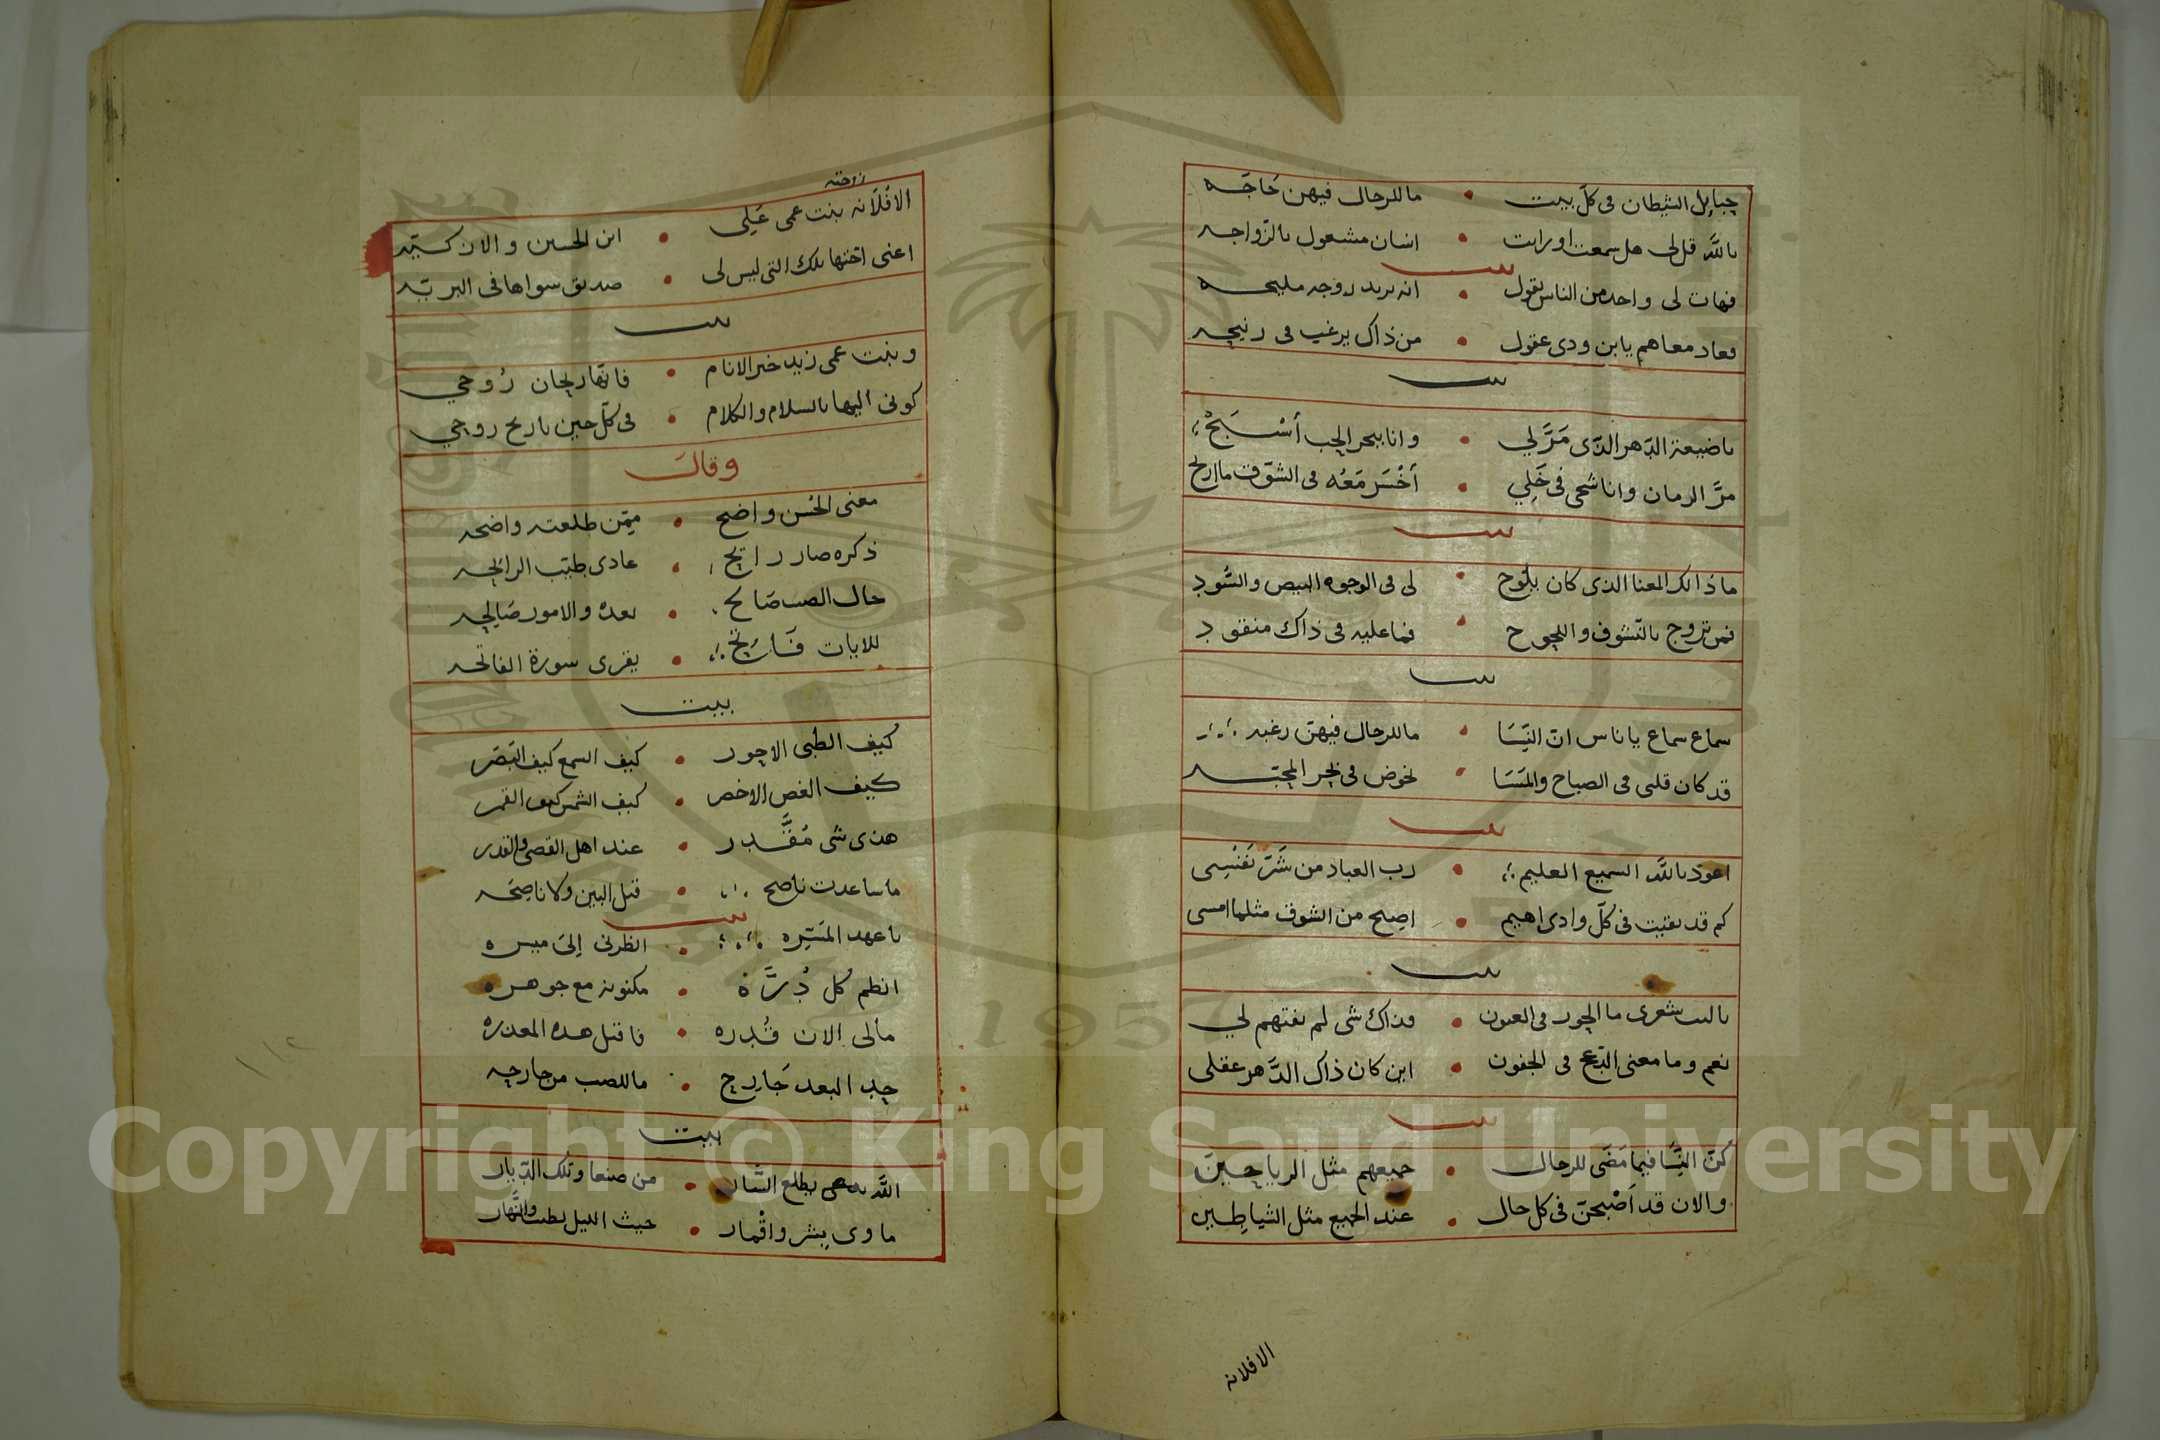 حبايل الشيطان في كل بيت • ما للرجال فيهن حَاجَه
بالله قل لي هل سمعت او رايت • انسان مشغول بالزواجه
بيت
فهات لي واحد من الناس يقول • انه يريد زوجه مليحه
فعاد معاهم يا بن ودي عقول • من ذاك يرغب في
بيت
يا ضيعة الدهر الذي مَرَّ لي • وانا ببحر الحب أسْبَحْ
مرَّ الزمان وانا شجي في خَلِي • أخْسَر مَعُه في الشوق ما اربح
بيت
ما ذالك المعنا الذي كان يلوح • لي في الوجوه البيض والسُود
فمن تزوج بالتشوف واللجوح • فما عليه في ذاك منقود
بيت
سماع سماع يا ناس ان النِسَا • ما للرجال فيهن رغبه
قد كان قلبي في الصباح والمَسَا • يخوض في بحر المحبه
بيت
اعوذ بالله السميع العليم • رب العباد من شَرّ نَفْسِي
كم قد بقيت في كل وادي اهيم • اصبح من الشوق مثلما امسى
بيت
يا ليت شعري ما الحور في العيون • وذاك شي لم يفتهم لي
نعم وما معنى الدعج في الجفون • اين كان ذاك الدَّهر عقلي
بيت
كنّ النِسَا فيما مَضَى للرجال • جميعهم مثل الرياحين
والان قد أصْبحن في كل حال • عند الجميع مثل الشياطين
الافلانه
الافلانه بنت عمي عَلِي • ابن الحسين والان
اعني اختها تلك التي ليس لي • صديق سواها في البريّه
بيت
وبنت عمي زيد خير الانام • فانها ريحان رُوحي
كوني اليها بالسلام والكلام • في كل حين يا ريح روحي
وقال
معنى الحُسن واضح • ممّن طلعته واضحه
ذكره صار رايح • عادى طيّب الرايحه
حال الصب صَالح • بعده والامور صَالِحه
للايات فَارح • يقرى سورة الفاتحه
بيت
كيف الظبي الاحور • كيف السمع كيف البَصَر
كيف الغصن الاخضر • كيف الشمس كيف القمر
هذي شي مُقَّدر • عند اهل القضى والقدر
ما ساعدت ناصح • قبل البين ولا ناصِحَه
بيت
يا عهد المَسَرّه • انظرني إلى ميسره
انظم كل دُرَّة • مكنونة مع جوهره
مالي الان قُدره • فاقبل هذه المعذره
حد البعد جَارح • ما للصب من جارحه
بيت
من صنعا وتلك الديار
ما وى بشر واقْمار • حيث الليل والنَّهار
Copyright © King Saud University
1957